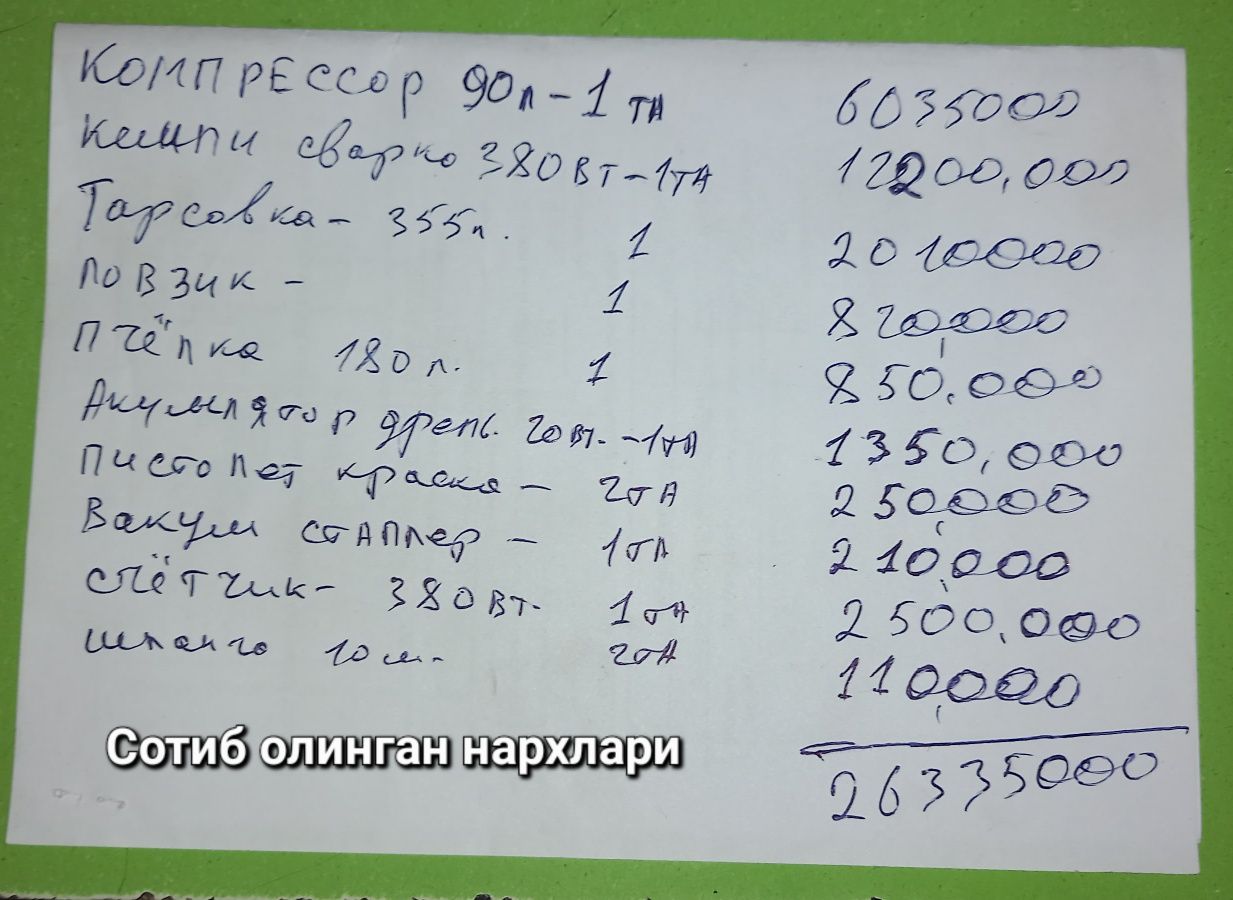 Компрессор 90л-1 та 6035000
Кемпи сварко 380вт-1та 12200,000
Тарсовка- 355л. 1 2010000
ловзик - 1 820,000
пчёлка 180л. 1 850,000
Акумлятор дрель. 20вт.-1та 1350,000
Пистолет краска - 2та 250,000
Вакум стаплер - 1та 210,000
счётчик- 380вт. 1та 2500,000
шланго 10м. 2та 110,000
26335000
Сотиб олинган нархлари